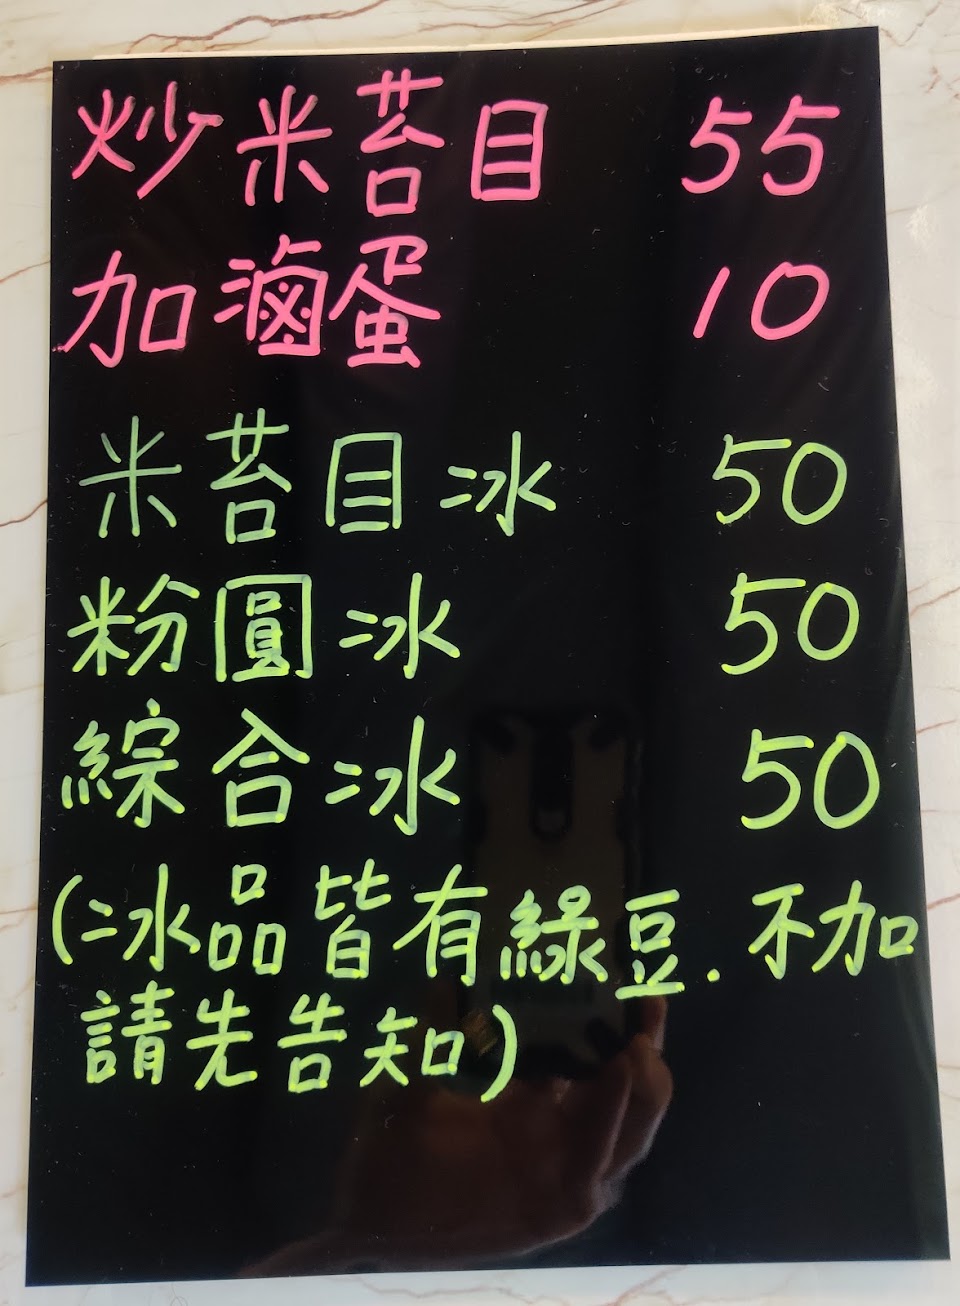 炒米苔目 55
加滷蛋 10
米苔目冰 50
粉圓冰 50
綜合冰 50
(冰品皆有綠豆.不加
請先告知)